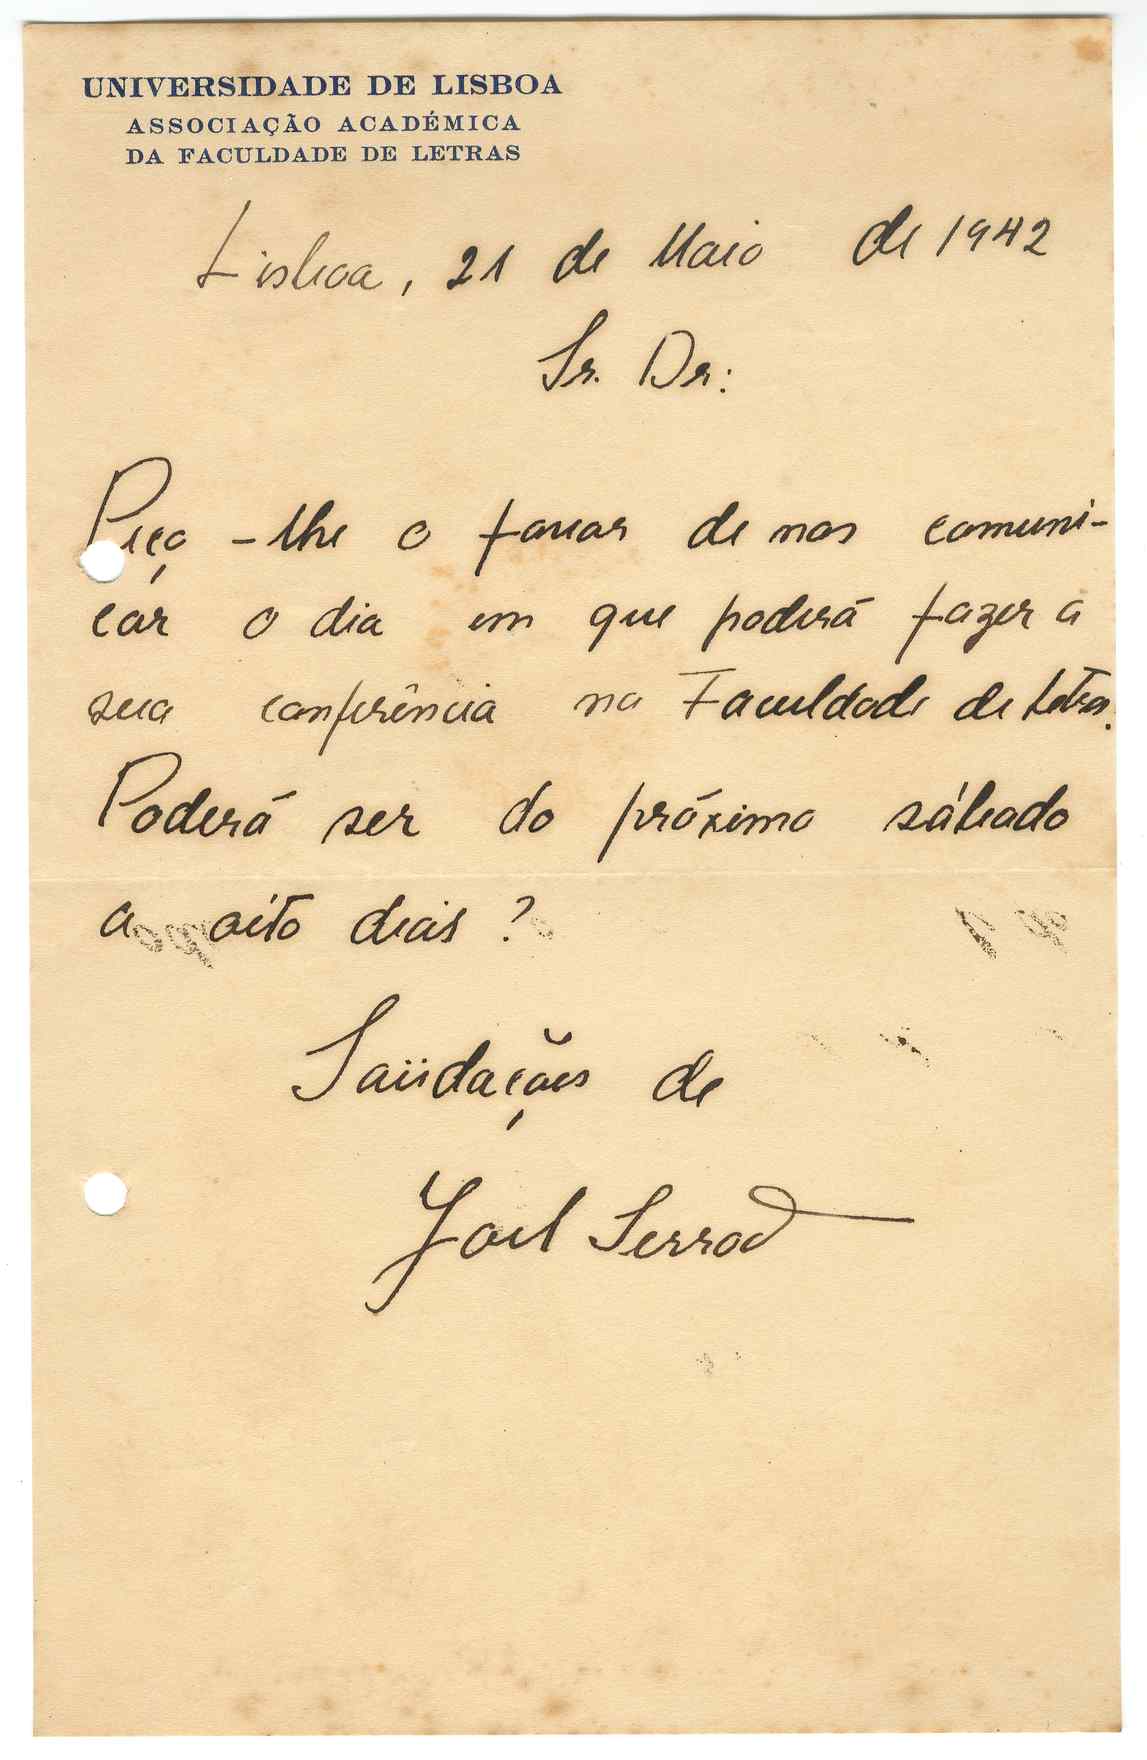 UNIVERSIDADE DE LISBOA
ASSOCIAÇÃO ACADÉMICA
DA FACULDADE DE LETRAS
Lisboa, 21 de Maio de 1942
Sr. Dr:
Peço-lhe o favor de nos comuni-
car o dia em que poderá fazer a
sua conferência na Faculdade de Letras.
Poderá ser do próximo sábado
a oito dias?
Saüdações de
Joel Serrão